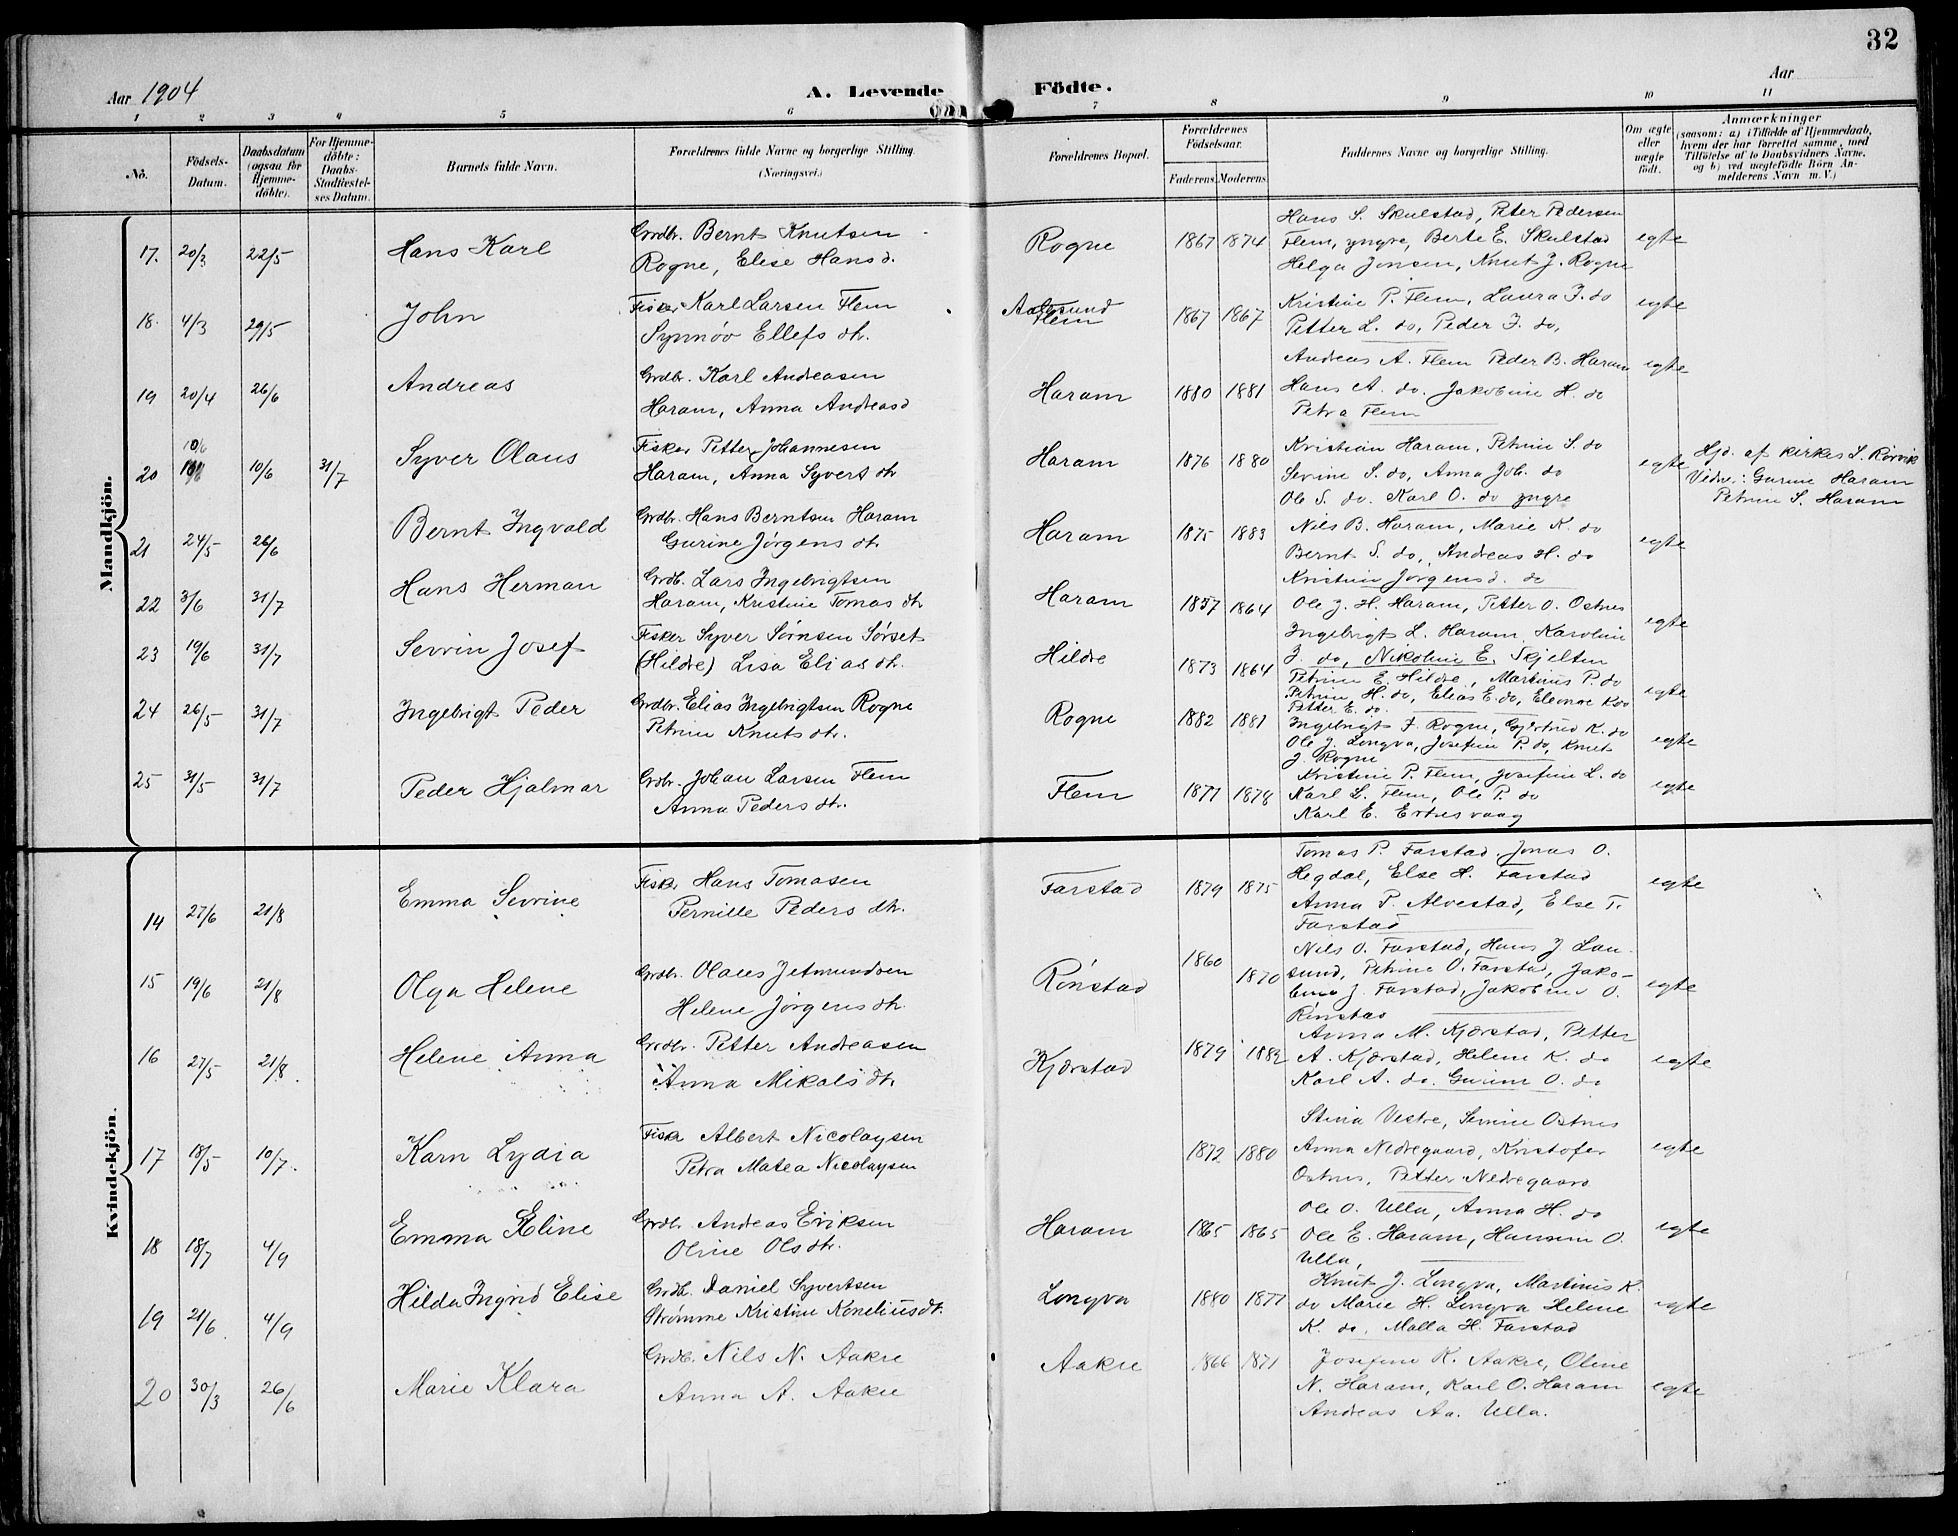 32
Aar 1904
A. Levende Födte.
Aar
1 2 3 4 5 6 7 8 9 10 11
Nö.
Födsels-Datum.
Daabsdatum (ogsaa for Hjemme-döbte).
For Hjemme-döbte: Daabs-Stadfæstel-ses Datum.
Barnets fulde Navn.
Forældrenes fulde Navne og borgerlige Stilling. (Næringsvei.)
Forældrenes Bopæl.
Forældrenes Födselsaar.
Faderens. Moderens.
Faddernes Navne og borgerlige Stilling.
Om ægte eller uægte født.
Anmærkninger
(saasom: a) i Tilfælde af Hjemmedaab,
hvem der har forrettet samme, med
Tilföielse af to Daabsvidners Navne,
og b) ved uægtefödte Börn An-
melderens Navn m. V.)
Mandkjön.
17. 20/3 22/5 Hans Karl
Grdbr. Bernt Knutsen
Rogne, Elise Hansd.
Rogne 1867 1874
Hans S. Skulstad, Peter Pedersen
Flem, yngre, Berte E. Skulstad
Helga Jonsen, Knut J. Rogne
egte
18. 4/3 29/5 John
Fisker Karl Larsen Flem
Synnøv Ellefs dtr.
Aalesund
Flem 1867 1867
Kristine P. Flem, Laura J. do
Petter L. do, Peder J. do,
egte
19 20/4 26/6 Andreas
Grdbr. Karl Andreasen
Haram, Anna Andreasd
Haram 1880 1881
Andreas A. Flem Peder B. Haram
Hans A. do. Jakobine H. do
Petra Flem
egte
10/6
20 10/6 31/7 Syver Olaus
Fisker Petter Johannesen
Haram, Anna Syvert dtr
Haram 1876 1880
Kristian Haram, Petrine S. do
Sevrine S. do, Anna Joh. do
Ole S. do. Karl O. do yngre
egte
Hjd. af kirkes. S. Rørvik
Vidn.: Gurine Haram
Petrine S. Haram
21 24/5 26/6 Bernt Ingvald
Grdbr. Hans Berntsen Haram
Gurine Jörgens dtr.
Haram 1875 1883
Nils B. Haram, Marie K. do
Bernt S. do, Andreas H. do
Kristine Jörgensd. do
egte
22 3/6 31/7 Hans Herman
Grdb. Lars Ingebrigtsen
Haram, Kristine Tomas dtr
Haram 1857 1864
Ole J. H. Haram, Petter O. Ostnes
Ingebrigt L. Haram, Karoline
J. do, Nikoline E. Skjelten
egte
23 19/6 31/7 Sevrin Josef
Fisker Syver Sørnsen Sørset
(Hildre) Lisa Elias dtr.
Hildre 1873 1864
Petrine E. Hildre, Martinus P. do
Petrine H. do, Elias E. do, Elenore K do
Petter E. do.
egte
24 26/5 31/7 Ingebrigt Peder
Grdbr. Elias Ingebrigtsen Rogne
Petrine Knuts dtr.
Rogne 1882 1881
Ingebrigt J. Rogne, Gjertrud K. do
Ole J. Longva, Josefine P. do, Knut
J. Rogne
egte
25 31/5 31/7 Peder Hjalmar
Grdbr. Johan Larsen Flem
Anna Peders dtr.
Flem 1871 1878
Kristine P. Flem, Josefine L. do
Karl L. Flem, Ole P. do
Karl E. Ertnesvaag
egte
Kvindekjön.
14 27/6 21/8 Emma Sevrine
Fisker Hans Tomasen
Pernille Peders dtr.
Farstad 1879 1875
Tomas P. Farstad, Jonas O.
Hegdal, Else H. Farstad
Anna P. Alvestad, Else T.
Farstad
egte
15 19/6 21/8 Olga Helene
Grdbr. Olaus Jetmundsen
Helene Jörgens dtr
Rönstad 1860 1870
Nils O. Farstad, Hans J Lau-
sund, Petrine O. Farstad, Jako-
bine J. Farstad, Jakobine O.
Rönstad
egte
16 27/5 21/8 Helene Anna
Grdbr. Petter Andreasen
Anna Mikals dtr
Kjærstad 1879 1882
Anna M. Kjærstad, Petter
A. Kjærstad, Helene K. do
Karl A. do. Gurine O. do
egte
17 18/5 10/7. Karn Lydia
Fisker Albert Nicolaysen
Petra Matea Nicolaysen
1872 1880
Stina Vestre, Sevrine Ostnes
Anna Nedregaard, Kristofer
Ostnes, Petter Nedregaard
egte
18 18/7 4/9 Emma Eline
Grdbr. Andreas Eriksen
Oline Ols dtr.
Haram 1865 1865
Ole O. Ulla, Anna H. do
Ole E. Haram, Hansine O.
Ulla,
egte
19 21/6 4/9 Hilda Ingrid Elise
Grdb. Daniel Syvertsen
Strømme Kristine Koneliusdt.
Longva 1880 1877
Knut J. Longva, Martinus K.
do Marie H. Longva Helene
K. do. Malla H. Farstad
egte
20 30/3 26/6 Marie Klara
Grdb. Nils N. Aakre
Anna A. Aakre
Aakre 1866 1871
Josefine K. Aakre, Oline
N. Haram, Karl O. Haram
Andreas Aa. Ulla.
egte